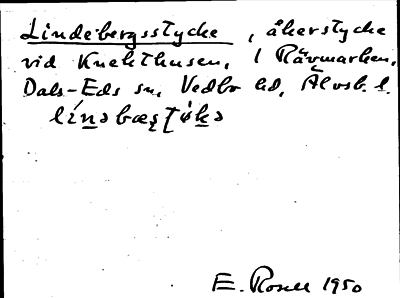 Lindebergsstycke, åkerstycke
vid Knekthusen, l Rävmarken,
Dals-Eds sn, Vedbo hd, Älvsb. l.
E. Rosell 1950